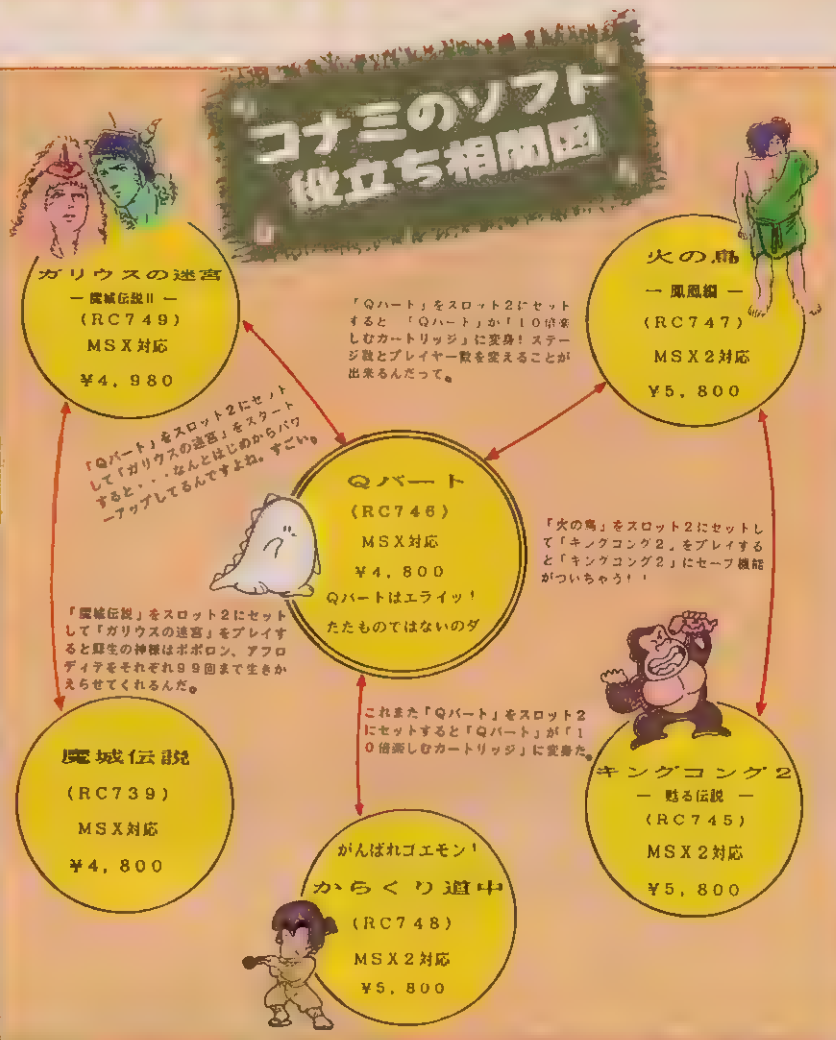 コナミのソフト
役立ち相関図
ガリウスの迷宮
― 魔城伝説II ―
(RC749)
MSX対応
¥4,980
火の鳥
― 鳳凰編 ―
(RC747)
MSX2対応
¥5,800
「Qバート」をスロット2にセット
すると 「Qバート」が「10倍楽
しむカートリッジ」に変身!ステー
ジ数とプレイヤー数を変えることが
出来るんだって。
「Qバート」をスロット2にセット
して「ガリウスの迷宮」をスタート
すると・・・なんとはじめからパワ
ーアップしてるんですよね。すごい。
Qバート
(RC746)
MSX対応
¥4,800
Qバートはエライッ!
ただものではないのダ
「火の鳥」をスロット2にセットし
て「キングコング2」をプレイする
と「キングコング2」にセーブ機能
がついちゃう!!
「魔城伝説」をスロット2にセット
して「ガリウスの迷宮」をプレイす
ると蘇生の神様はポポロン、アフロ
ディテをそれぞれ99回まで生きか
えらせてくれるんだ。
これまた「Qバート」をスロット2
にセットすると「Qバート」が「1
0倍楽しむカートリッジ」に変身だ。
魔城伝説
(RC739)
MSX対応
¥4,800
キングコング2
― 甦る伝説 ―
(RC745)
MSX2対応
¥5,800
がんばれゴエモン!
からくり道中
(RC748)
MSX2対応
¥5,800